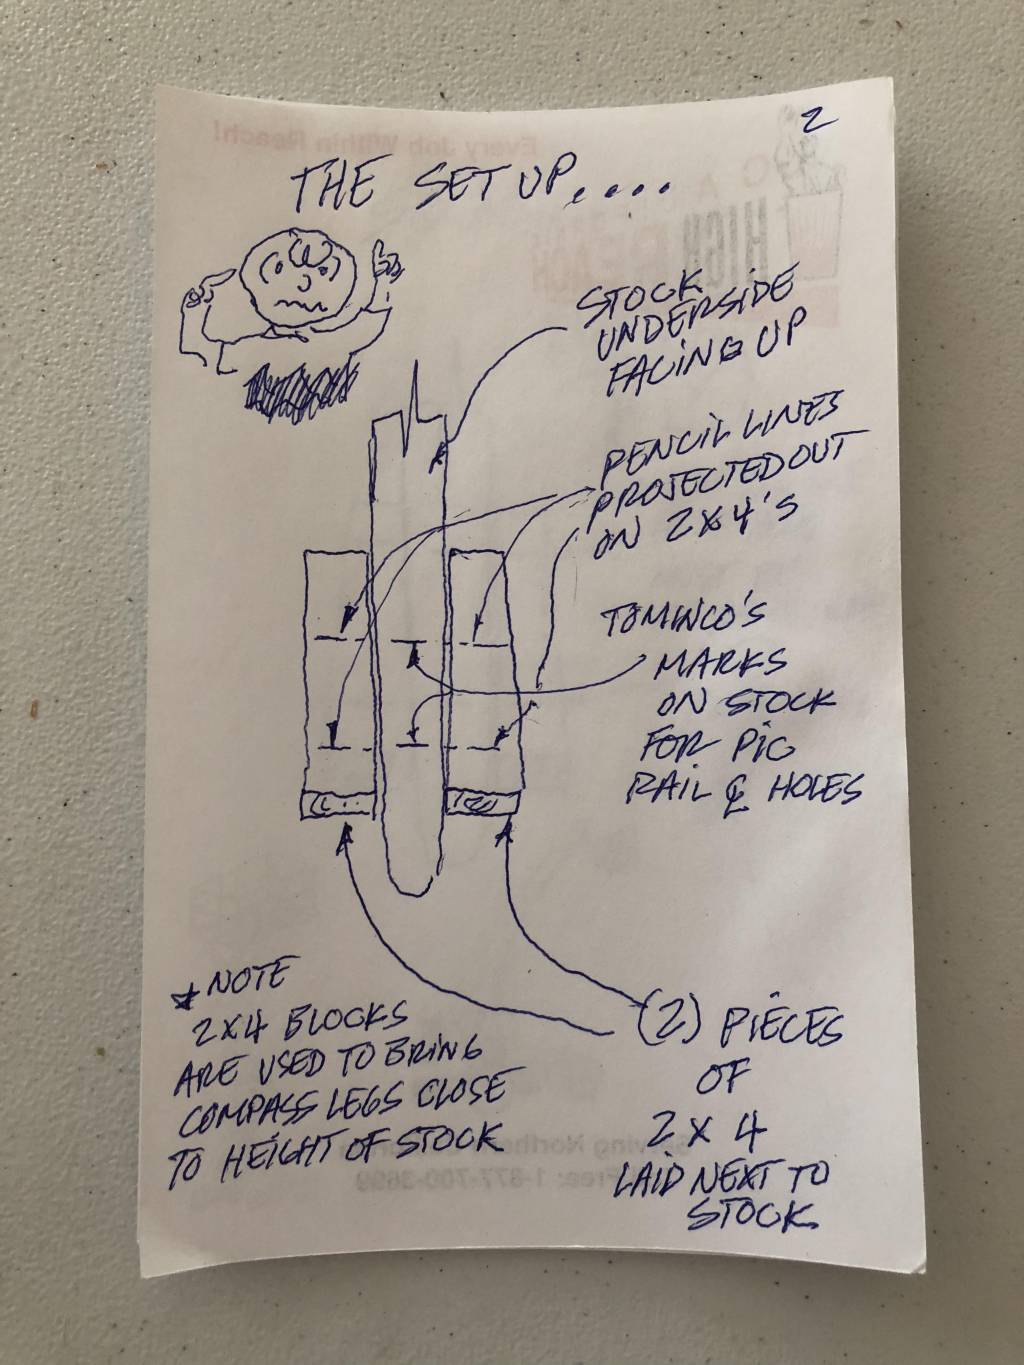 2
THE SET UP....
STOCK
UNDERSIDE
FACING UP
PENCIL LINES
PROJECTED OUT
ON 2X4'S
TOMINCO'S
MARKS
ON STOCK
FOR PIC
RAIL ℄ HOLES
* NOTE
2X4 BLOCKS
ARE USED TO BRING
COMPASS LEGS CLOSE
TO HEIGHT OF STOCK
(2) PIECES
OF
2 X 4
LAID NEXT TO
STOCK
Every Job Within Reach!
HIGH REACH